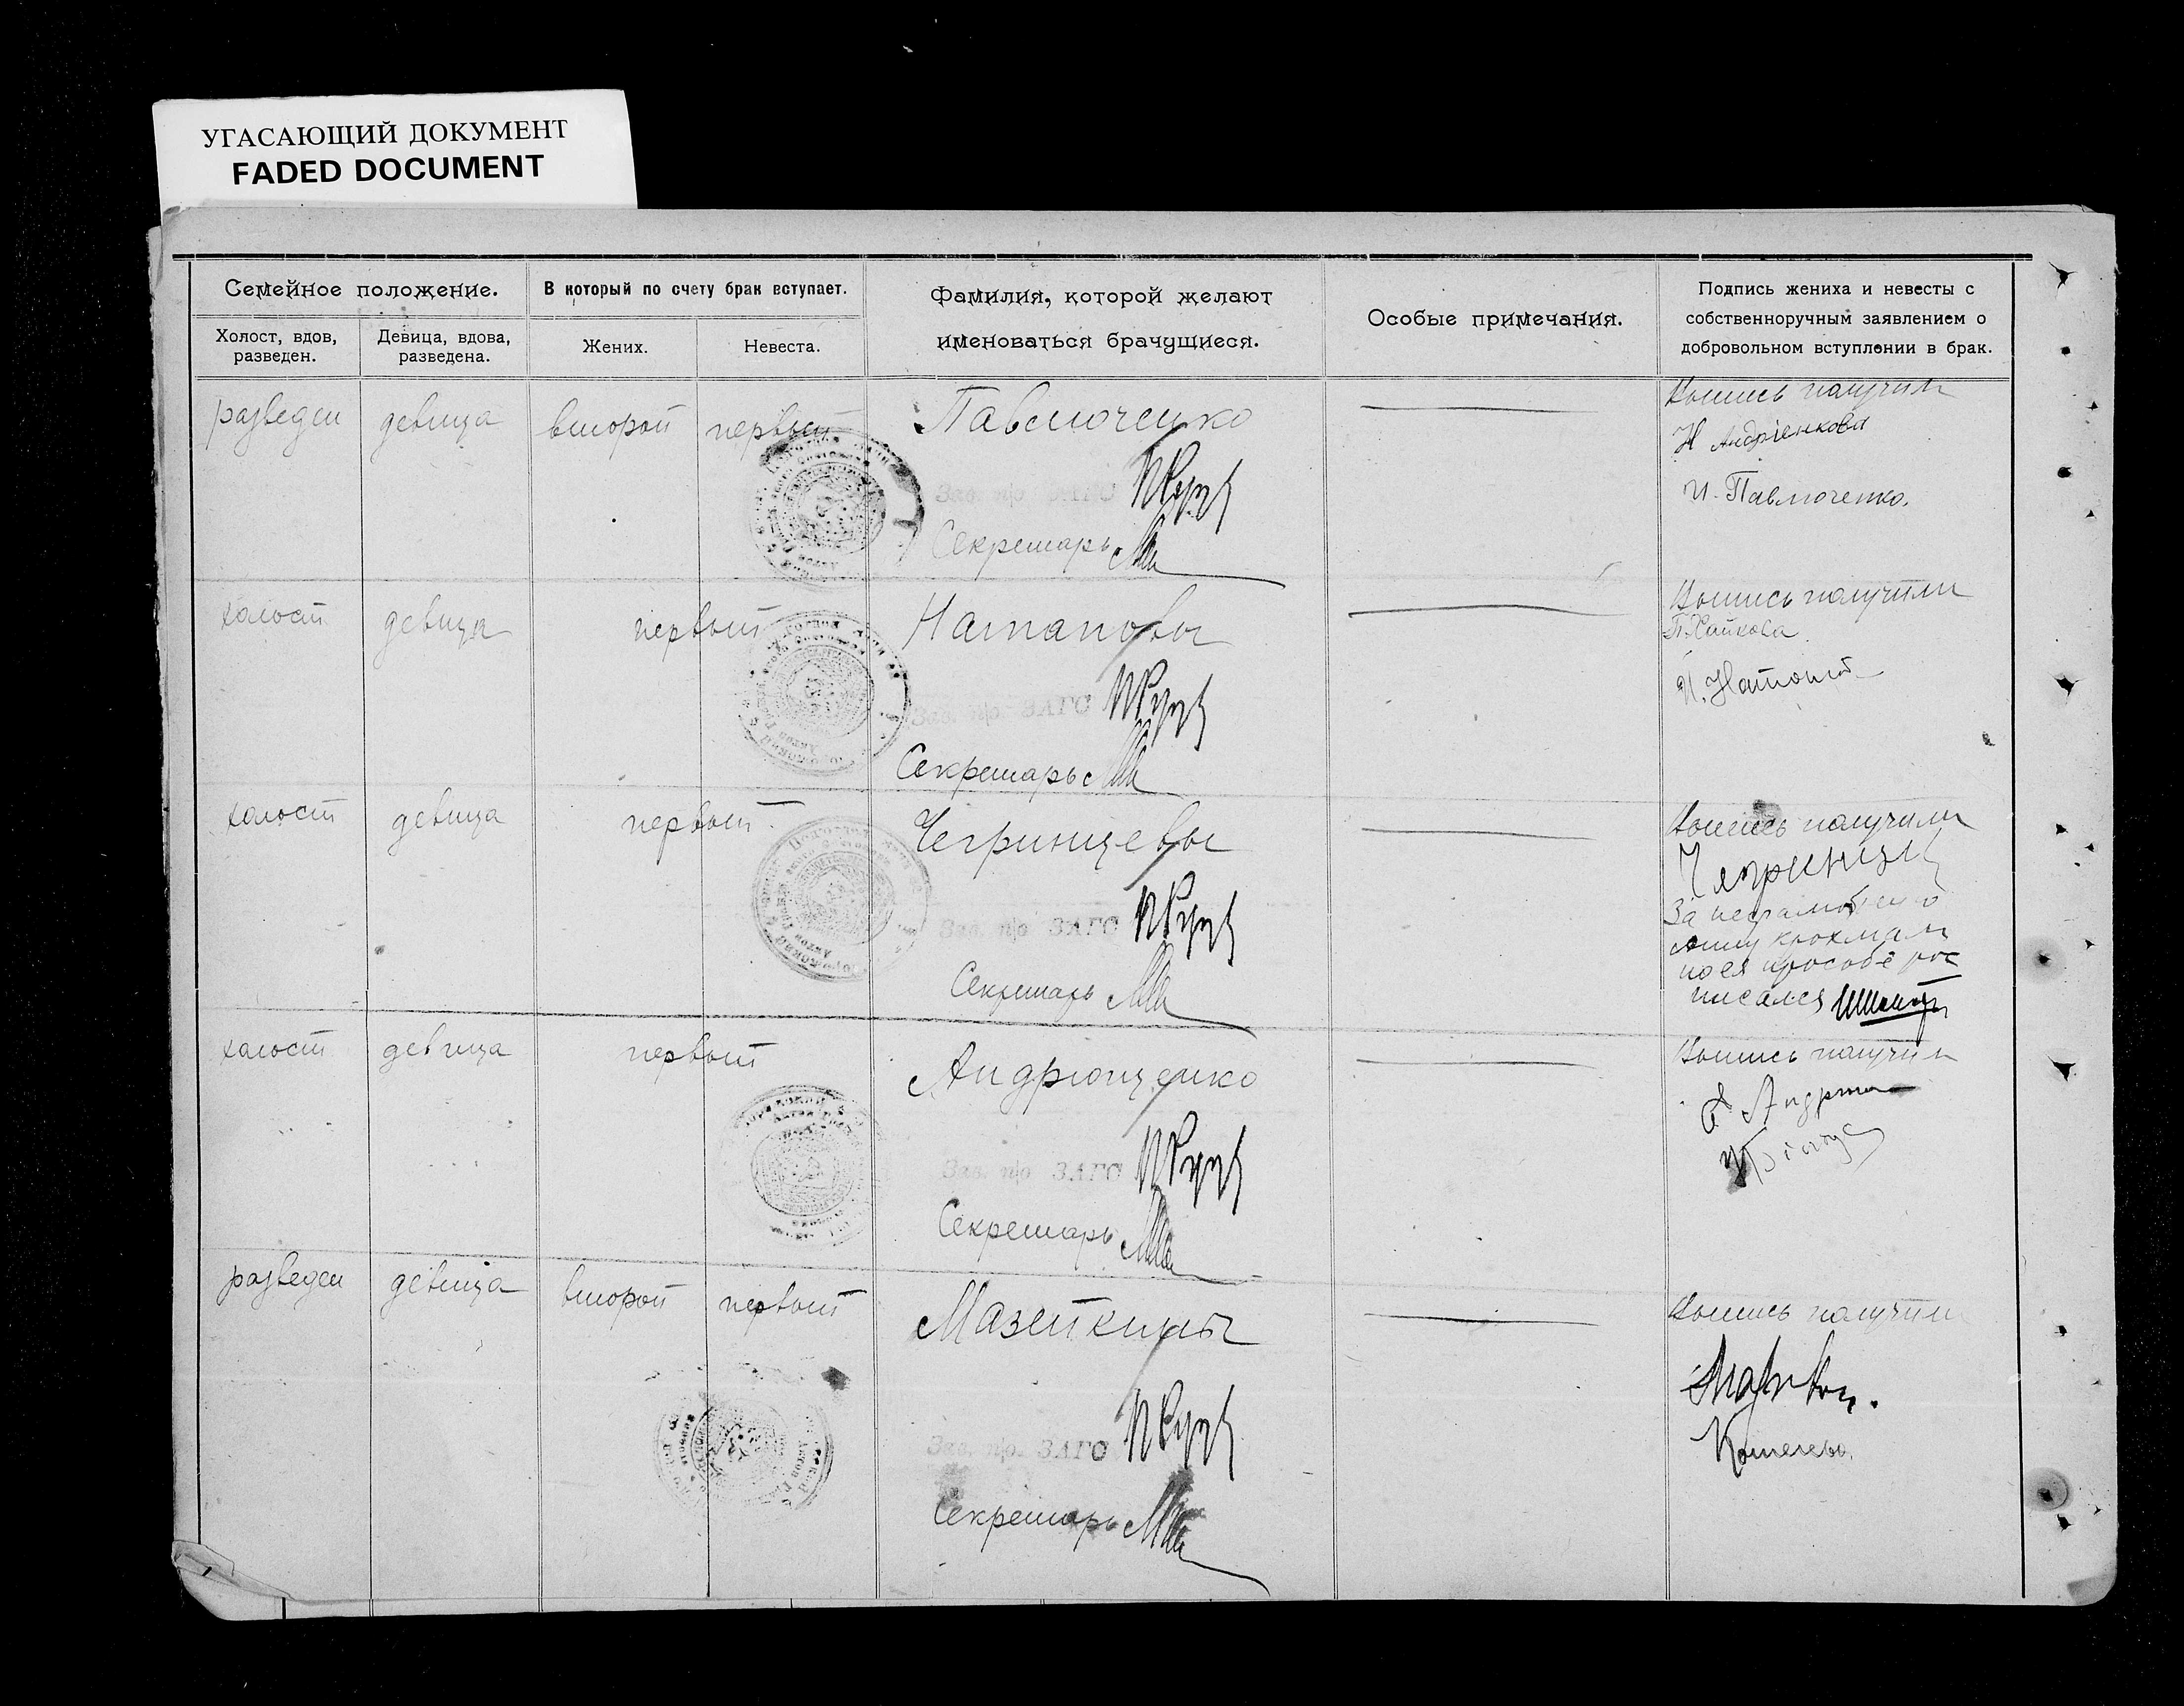 УГАСАЮЩИЙ ДОКУМЕНТ
FADED DOCUMENT
Семейное положение.
В который по счету брак вступает.
Фамилия, которой желают
именоваться брачущиеся.
Особые примечания.
Подпись жениха и невесты с
собственноручным заявлением о
добровольном вступлении в брак.
Холост, вдов,
разведен.
Девица, вдова,
разведена.
Жених.
Невеста.
разведен
девица
второй
первый
Павлюченко
Зав. п/о ЗАГС
Секретарь
Выпись получили
Н Андріенкова
И. Павлюченко.
холост
девица
первый
Натаповы
Зав. п/о ЗАГС
Секретарь
Выпись получили
П. Хайкова
холост
девица
первый
Чегринцевы
Зав. п/о ЗАГС
Секретарь
Выпись получили
За неграмотную
по ея прособе рос
писался
холост
девица
первый
Андрющенко
Зав. п/о ЗАГС
Секретарь
Выпись получили
разведен
девица
второй
первый
Мазепкины
Зав. п/о. ЗАГС
Секретарь
Выпись получили